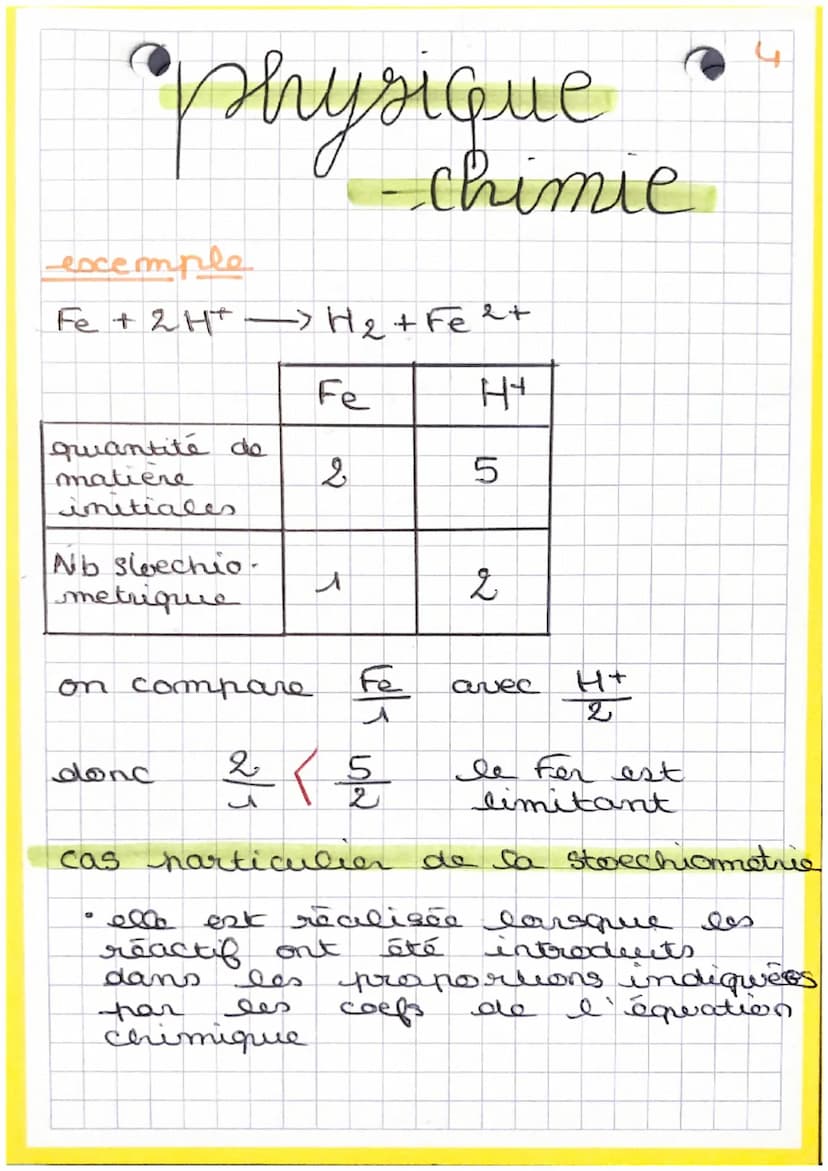 4
physique
-chimie
excemple
Fe + 2H⁺ → H₂ + Fe²⁺
Fe H⁺
quantité de
matière
initiales
2 5
Nb stoechio-
metrique
1 2
on compare Fe/1 avec H+/2
donc 2/1 < 5/2 le Fer est
limitant
cas particulier de la stoechiometrie
• elle est réalisée lorsque les
réactif ont été introduits
dans les proportions indiquées
par les coefs de l'équation
chimique